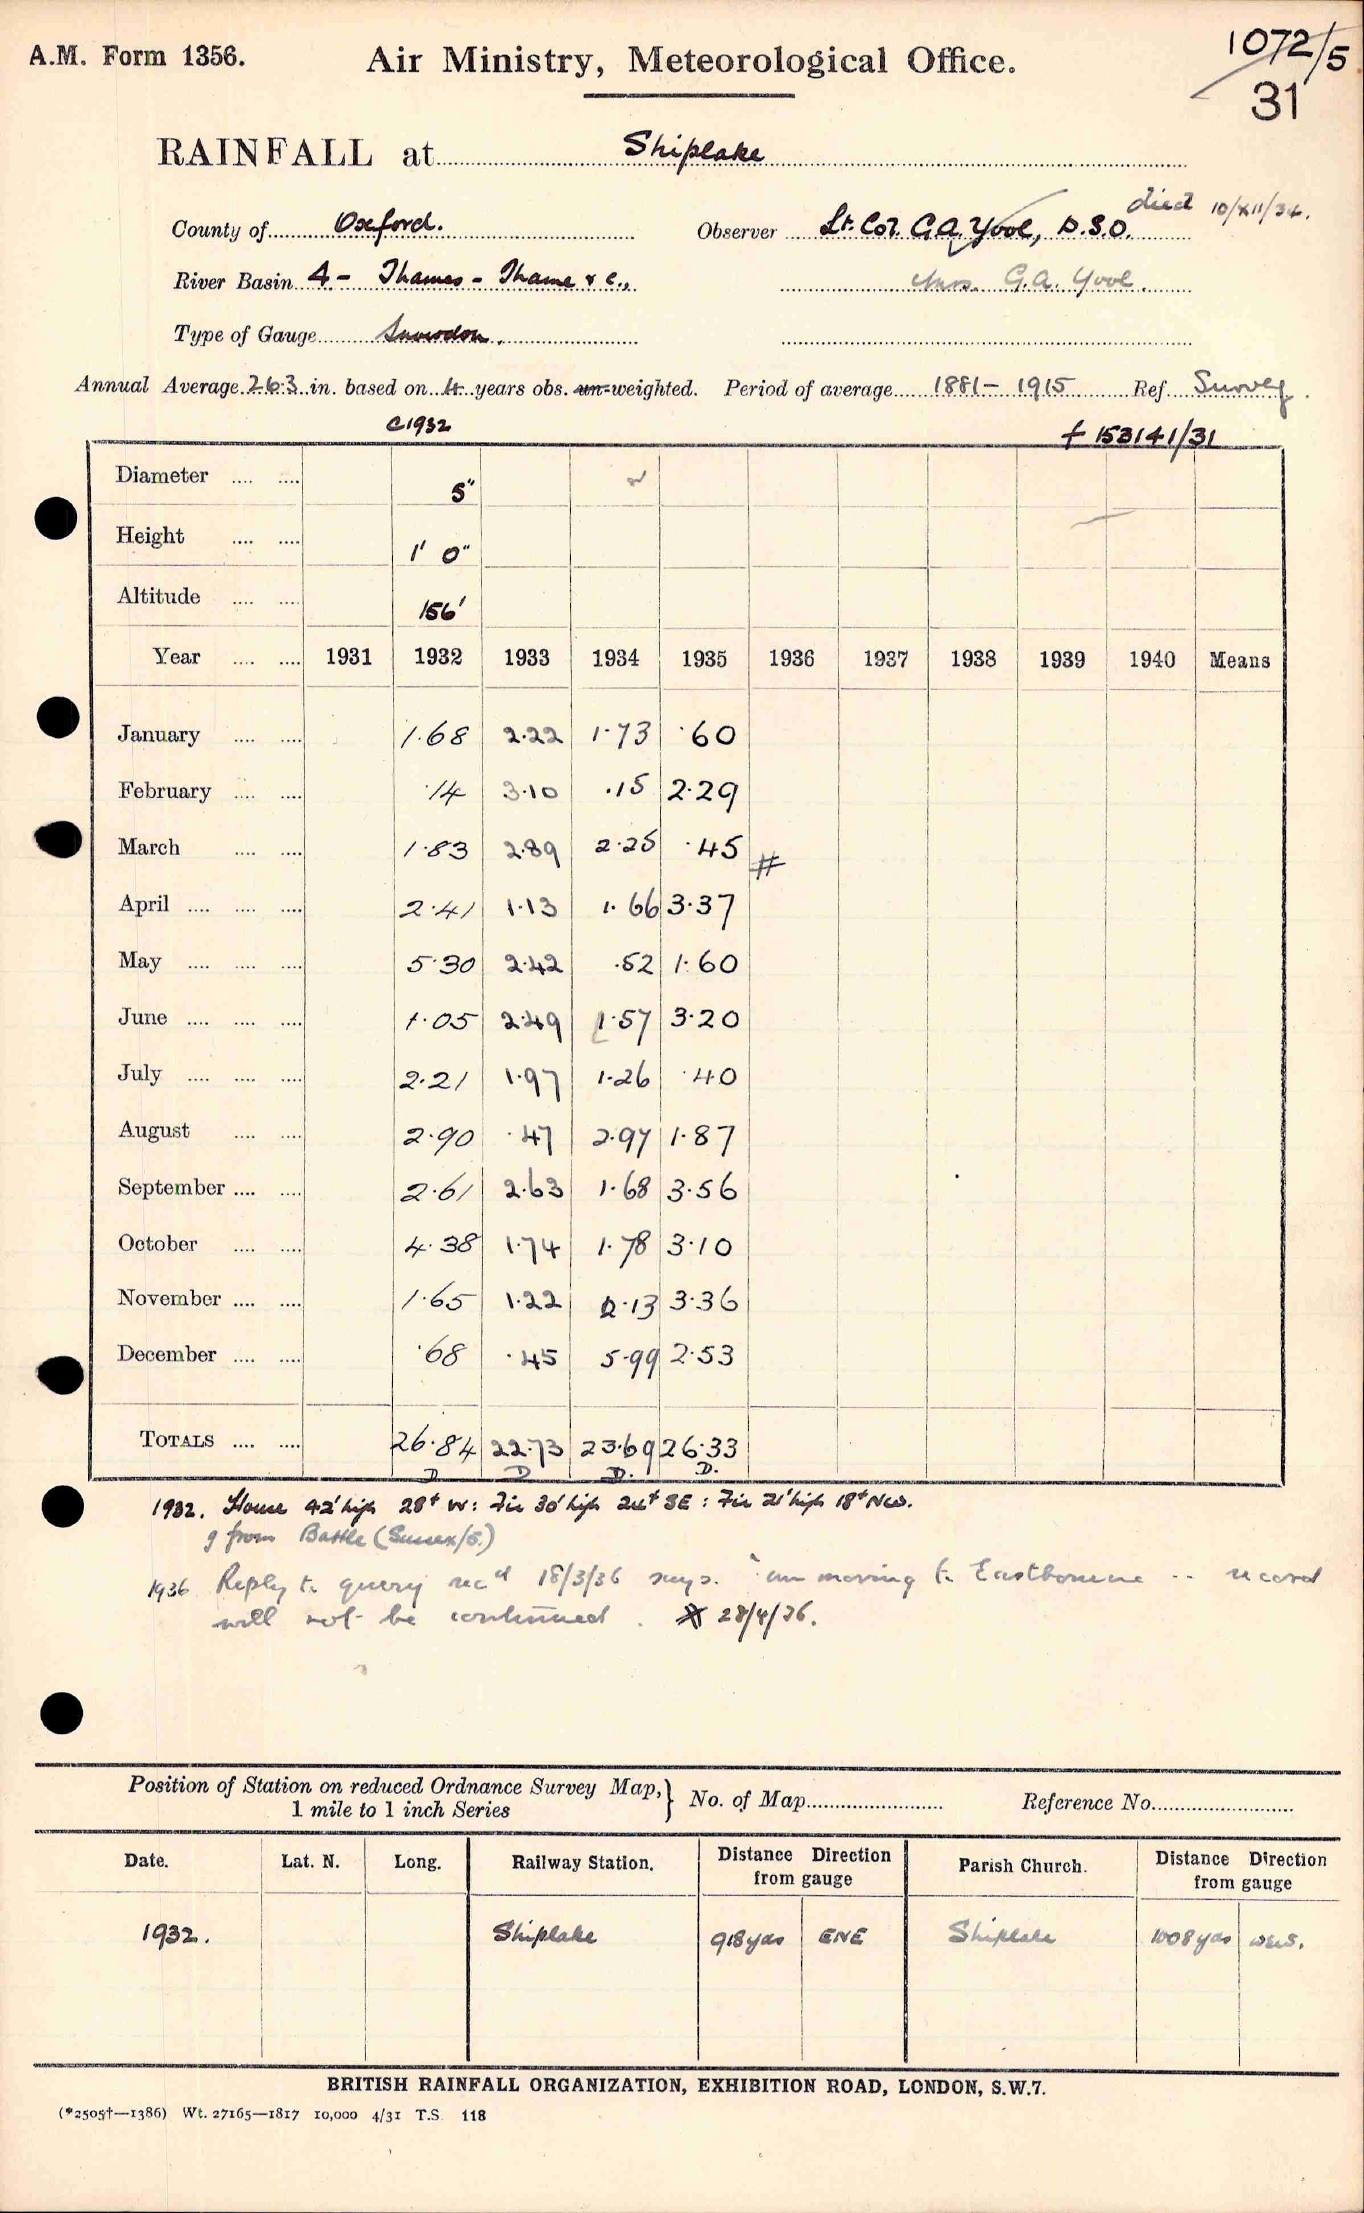 A.M. Form 1356.
Air Ministry, Meteorological Office.
1072/5
31
RAINFALL at Shiplake
County of Oxford.
Observer Lt. Col. G.A. Yool, D.S.O. died 10/XII/34.
River Basin 4 - Thames - Thame & c.,
Mrs. G.A. Yool.
Type of Gauge Snowdon.
Annual Average 26.3 in. based on 4 years obs. un-weighted. Period of average 1881-1915 Ref. Survey.
c1932 f 153141/31
Diameter .... .... 5"
Height .... .... 1' 0"
Altitude .... .... 156'
Year .... .... 1931 1932 1933 1934 1935 1936 1937 1938 1939 1940 Means
January .... .... 1.68 2.22 1.73 .60
February .... .... .14 3.10 .15 2.29
March .... .... 1.83 2.89 2.25 .45 #
April .... .... .... 2.41 1.13 1.66 3.37
May .... .... .... 5.30 2.42 .52 1.60
June .... .... .... 1.05 2.49 1.57 3.20
July .... .... .... 2.21 1.97 1.26 .40
August .... .... 2.90 .47 2.97 1.87
September .... .... 2.61 2.63 1.68 3.56
October .... .... 4.38 1.74 1.78 3.10
November .... .... 1.65 1.22 2.13 3.36
December .... .... .68 .45 5.99 2.53
TOTALS .... .... 26.84 22.73 23.69 26.33
D D D. D.
1932. House 42' high 28ft W: Fir 30' high 24ft SE: Fir 21' high 18ft NW.
g from Battle (Sussex/5.)
1936 Reply to query recd 18/3/36 says. "am moving to Eastbourne -- record
will not be continued. 28/4/36.
Position of Station on reduced Ordnance Survey Map, } No. of Map Reference No.
1 mile to 1 inch Series
Date. Lat. N. Long. Railway Station. Distance Direction from gauge Parish Church. Distance Direction from gauge
1932. Shiplake 918 yds ENE Shiplake 1008 yds
BRITISH RAINFALL ORGANIZATION, EXHIBITION ROAD, LONDON, S.W.7.
(*2505†—1386) Wt. 27165—1817 10,000 4/31 T.S. 118